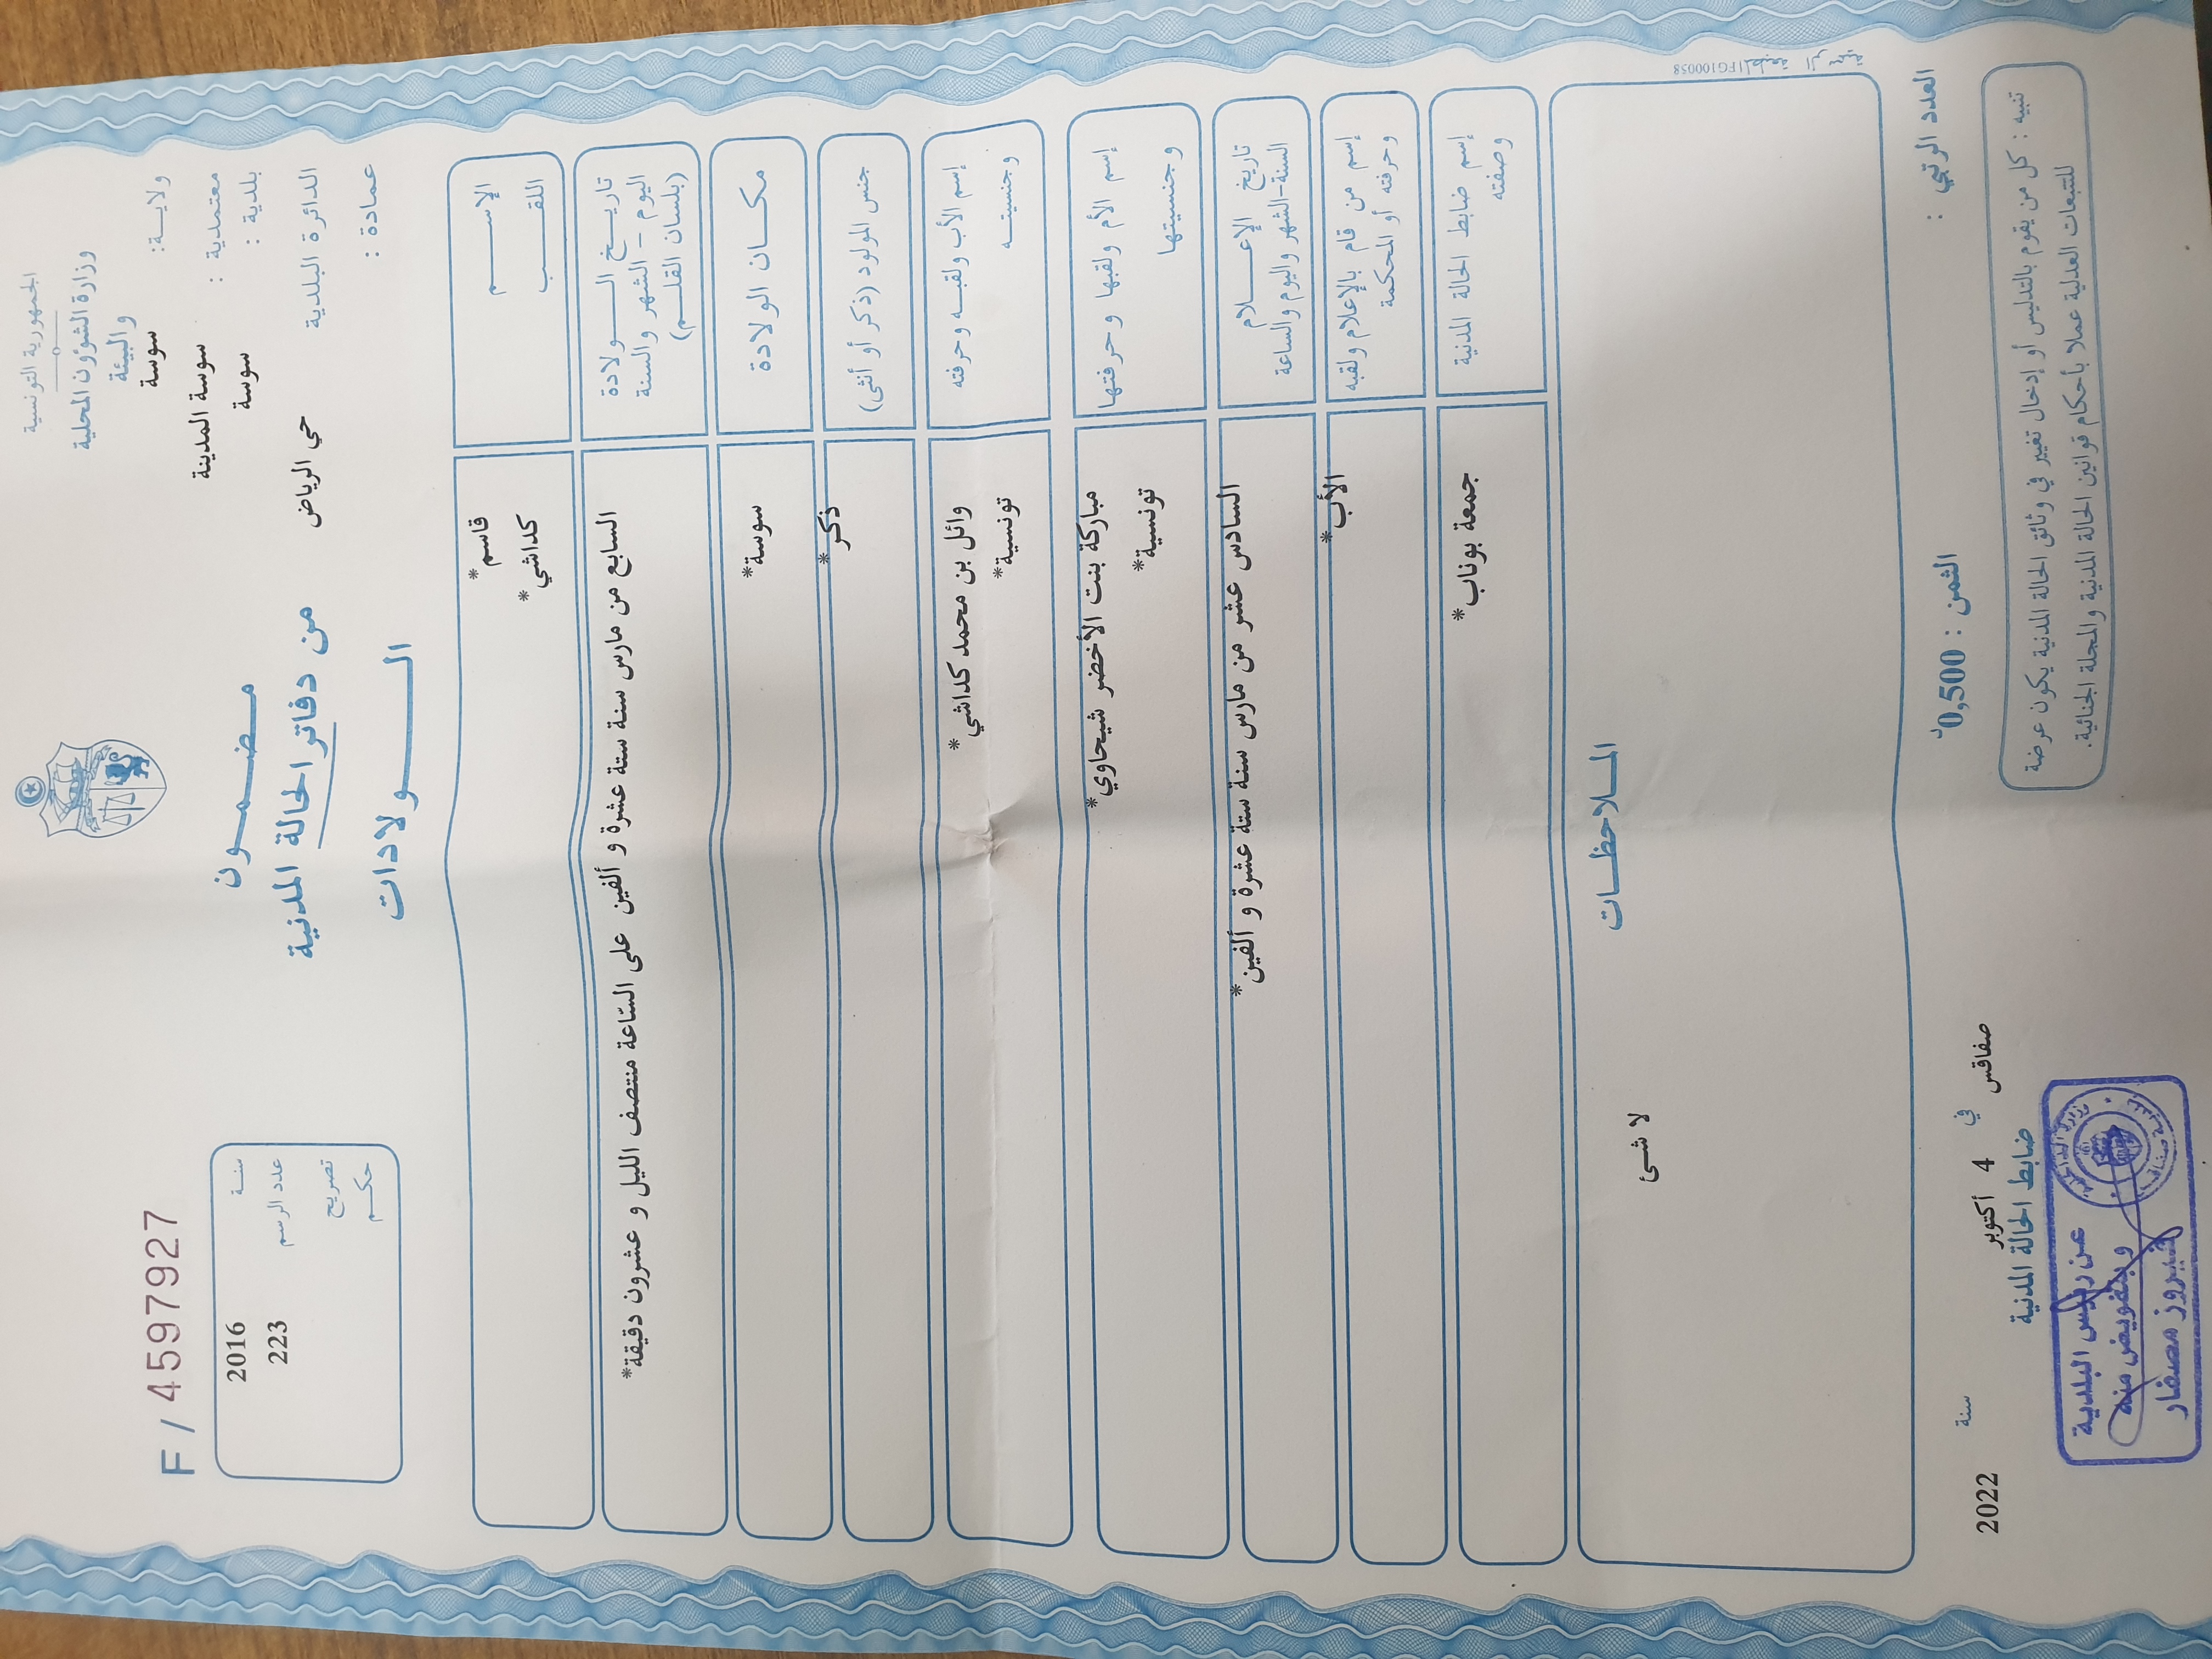 الجمهورية التونسية
وزارة الشؤون المحلية
والبيئة
ولايــة: سوسة
معتمدية : سوسة المدينة
بلدية : سوسة
الدائرة البلدية حي الرياض
عمادة :
مضمــون
من دفاتر الحالة المدنية
الــولادات
F / 4597927
سنـة 2016
عدد الرسم 223
تصريح
حكـم
الإســـم
اللقــب
قاسم*
كداشي*
تاريــخ الـــولادة
اليوم - الشهر والسنة
(بلسان القلــم)
السابع من مارس سنة ستة عشرة و ألفين على الساعة منتصف الليل و عشرون دقيقة*
مكــان الولادة
سوسة*
جنس المولود (ذكر أو أنثى)
ذكر*
إسم الأب ولقبـه وحرفته
وجنسيتــه
وائل بن محمد كداشي*
تونسية*
إسم الأم ولقبها وحرفتها
وجنسيتها
مباركة بنت الأخضر شيحاوي*
تونسية*
تاريخ الإعـــلام
السنة-الشهر واليوم والساعة
السادس عشر من مارس سنة ستة عشرة و ألفين*
إسم من قام بالإعلام ولقبه
وحرفته أو المحكمة
الأب*
إسم ضابط الحالة المدنية
وصفته
جمعة بوناب*
المـلاحظـات
لا شئ
العدد الرتبي :
الثمن : 0,500د
صفاقس في 4 أكتوبر سنة 2022
ضابط الحالة المدنية
تنبيه : كل من يقوم بالتدليس أو إدخال تغيير في وثائق الحالة المدنية يكون عرضة
للتتبعات العدلية عملا بأحكام قوانين الحالة المدنية والمجلة الجنائية.
عن رئيس البلدية
وبتفويض منه
فيروز مصفار